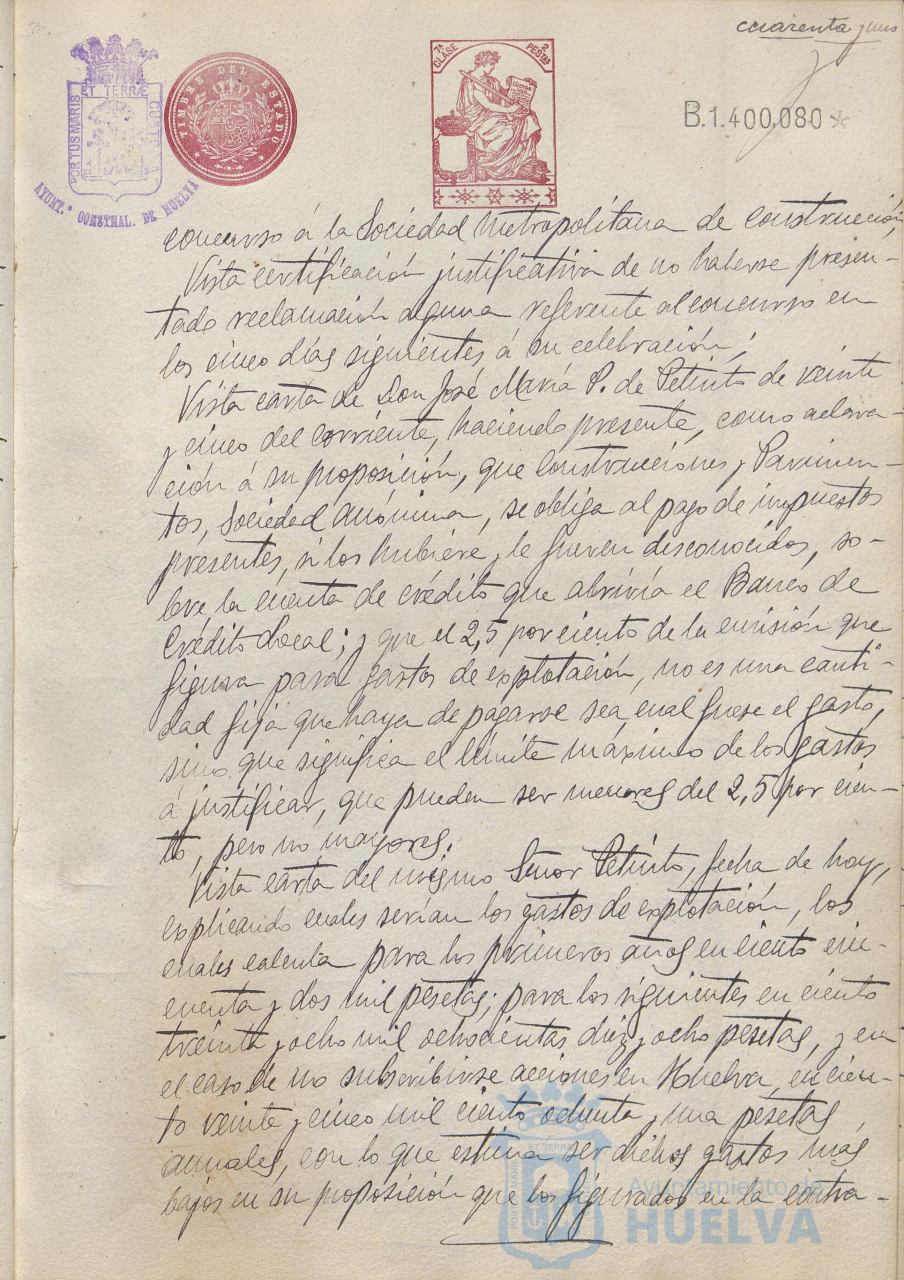 cuarenta y uno
PORTUS MARIS
ET TERRÆ
CUSTODIA
AYUNT.º CONSTNAL. DE HUELVA
TIMBRE DEL ESTADO
7ª CLASE
2 PESETAS
B.1.400,080
concurso á la Sociedad Metropolitana de Construcción,
Vista certificación justificativa de no haberse presen-
tado reclamación alguna referente al concurso en
los cinco días siguientes á su celebración;
Vista carta de Don José María P. de Petinto de veinte
y cinco del corriente, haciendo presente, como aclara-
ción á su proposición, que Construcciones y Pavimen-
tos, Sociedad Anónima, se obliga al pago de impuestos
presentes, si los hubiere y le fueren desconocidos, so-
bre la cuenta de crédito que abriría el Banco de
Crédito Local; y que el 2,5 por ciento de la emisión que
figura para gastos de explotación, no es una canti-
dad fija que haya de pagarse sea cual fuese el gasto,
sino que significa el límite máximo de los gastos
á justificar, que pueden ser menores del 2,5 por cien-
to, pero no mayores.
Vista carta del mismo Señor Petinto, fecha de hoy,
explicando cuales serían los gastos de explotación, los
cuales calcula para los primeros años en ciento cin-
cuenta y dos mil pesetas; para los siguientes en ciento
treinta y ocho mil ochocientas diez y ocho pesetas, y en
el caso de no subscribirse acciones en Huelva, en cien-
to veinte y cinco mil ciento ochenta y una pesetas
anuales, con lo que estima ser dichos gastos más
bajos en su proposición que los figurados en la contra-
Ayuntamiento de
HUELVA